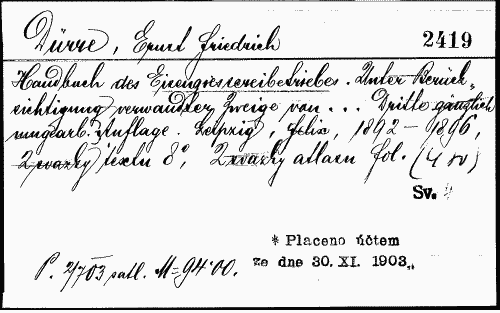 Dürre, Ernst Friedrich
2419
Handbuch des Eisengiessereibetriebes. Unter Berück-
sichtigung verwandter Zweige von ... Dritte gänzlich
umgearb. Auflage. Leipzig, Felix, 1892-1896,
2 svazky textu 8°, 2 svazky atlasu fol. (4 sv)
Sv.
* Placeno účtem
ze dne 30. XI. 1903.
P. 2/703 satl. M=94·00.